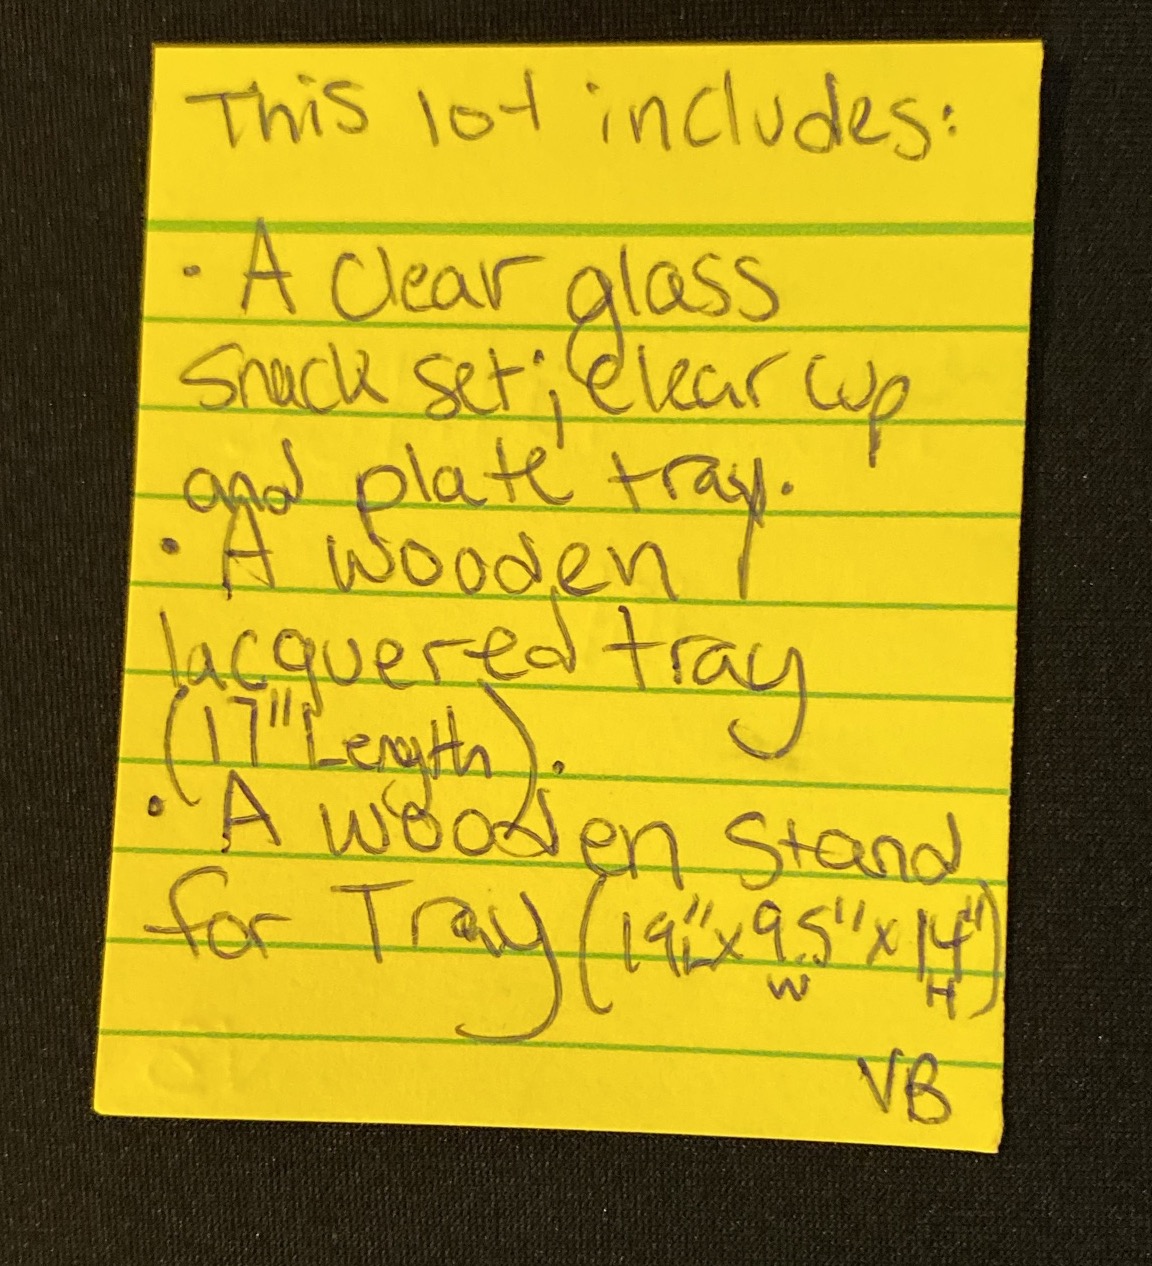 This lot includes:
• A clear glass
snack set; clear cup
and plate tray.
• A wooden
lacquered tray
(17" Length).
• A wooden stand
for Tray (19"L x 9.5"W x 14"H)
VB